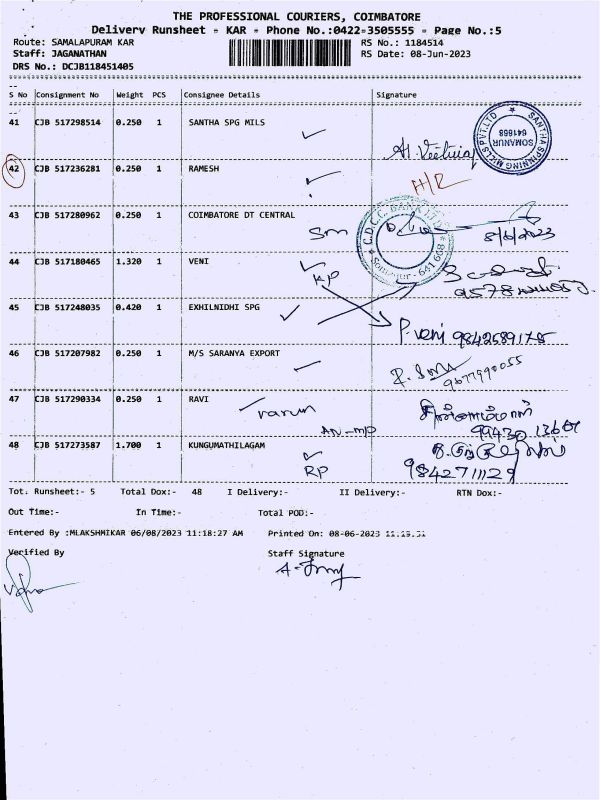 THE PROFESSIONAL COURIERS, COIMBATORE
Delivery Runsheet - KAR - Phone No.:0422-3505555 - Page No.:5
Route: SAMALAPURAM KAR
RS No.: 1184514
Staff: JAGANATHAN
RS Date: 08-Jun-2023
DRS No.: DCJB118451405
S No Consignment No Weight PCS Consignee Details Signature
41 CJB 517298514 0.250 1 SANTHA SPG MILS
SANTHA SPINNING MILLS PVT.LTD SOMANUR 641668
42 CJB 517236281 0.250 1 RAMESH
43 CJB 517280962 0.250 1 COIMBATORE DT CENTRAL Sm 8/6/2023
C.D.C.C. BANK LTD Somanur - 641 668
44 CJB 517180465 1.320 1 VENI
RP
45 CJB 517248035 0.420 1 EXHILNIDHI SPG
P.veni 9842589175
46 CJB 517207982 0.250 1 M/S SARANYA EXPORT
9677990055
47 CJB 517290334 0.250 1 RAVI
varun
48 CJB 517273587 1.700 1 KUNGUMATHILAGAM
RP 9842711129
Tot. Runsheet:- 5 Total Dox:- 48 I Delivery:- II Delivery:- RTN Dox:-
Out Time:- In Time:- Total POD:-
Entered By :MLAKSHMIKAR 06/08/2023 11:18:27 AM Printed On: 08-06-2023
Verified By Staff Signature